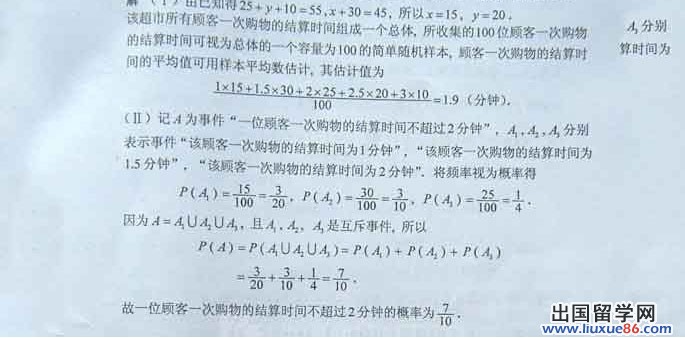 解 (Ⅰ) 由已知得25+y+10=55, x+30=45, 所以x=15, y=20.
该超市所有顾客一次购物的结算时间组成一个总体, 所收集的100位顾客一次购物
的结算时间可视为总体的一个容量为100的简单随机样本, 顾客一次购物的结算时
间的平均值可用样本平均数估计, 其估计值为
(1×15+1.5×30+2×25+2.5×20+3×10)/100=1.9 (分钟).
(Ⅱ) 记A为事件“一位顾客一次购物的结算时间不超过2分钟”, A₁, A₂, A₃分别
表示事件“该顾客一次购物的结算时间为1分钟”, “该顾客一次购物的结算时间为
1.5分钟”, “该顾客一次购物的结算时间为2分钟”. 将频率视为概率得
P(A₁)=15/100=3/20, P(A₂)=30/100=3/10, P(A₃)=25/100=1/4.
因为A=A₁∪A₂∪A₃, 且A₁, A₂, A₃是互斥事件, 所以
P(A)=P(A₁∪A₂∪A₃)=P(A₁)+P(A₂)+P(A₃)
=3/20+3/10+1/4=7/10.
故一位顾客一次购物的结算时间不超过2分钟的概率为7/10.
A₃分别
算时间为
出国留学网
www.liuxue86.com